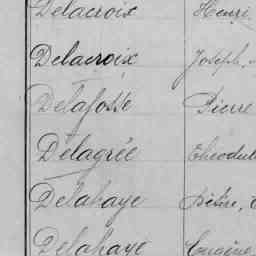 Delacroix Henri
Delacroix Joseph
Delafosse Pierre
Delagrée Théodule
Delahaye Désiré,
Delahaye Eugène